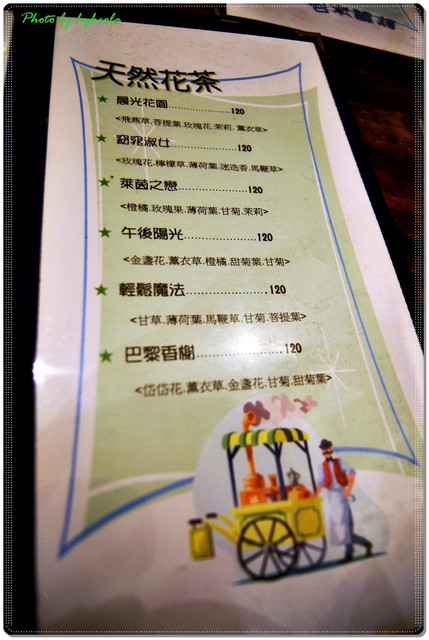 Photo by hykcolz
天然花茶
★ 晨光花園....................120
<飛燕草.菩提葉.玫瑰花.茉莉.薰衣草>
★ 窈窕淑女....................120
<玫瑰花.檸檬草.薄荷葉.迷迭香.馬鞭草>
★ 萊茵之戀....................120
<橙橘.玫瑰果.薄荷葉.甘菊.茉莉>
★ 午後陽光....................120
<金盞花.薰衣草.橙橘.甜菊葉.甘菊>
★ 輕鬆魔法....................120
<甘草.薄荷葉.馬鞭草.甘菊.菩提葉>
★ 巴黎香榭....................120
<岱岱花.薰衣草.金盞花.甘菊.甜菊葉>